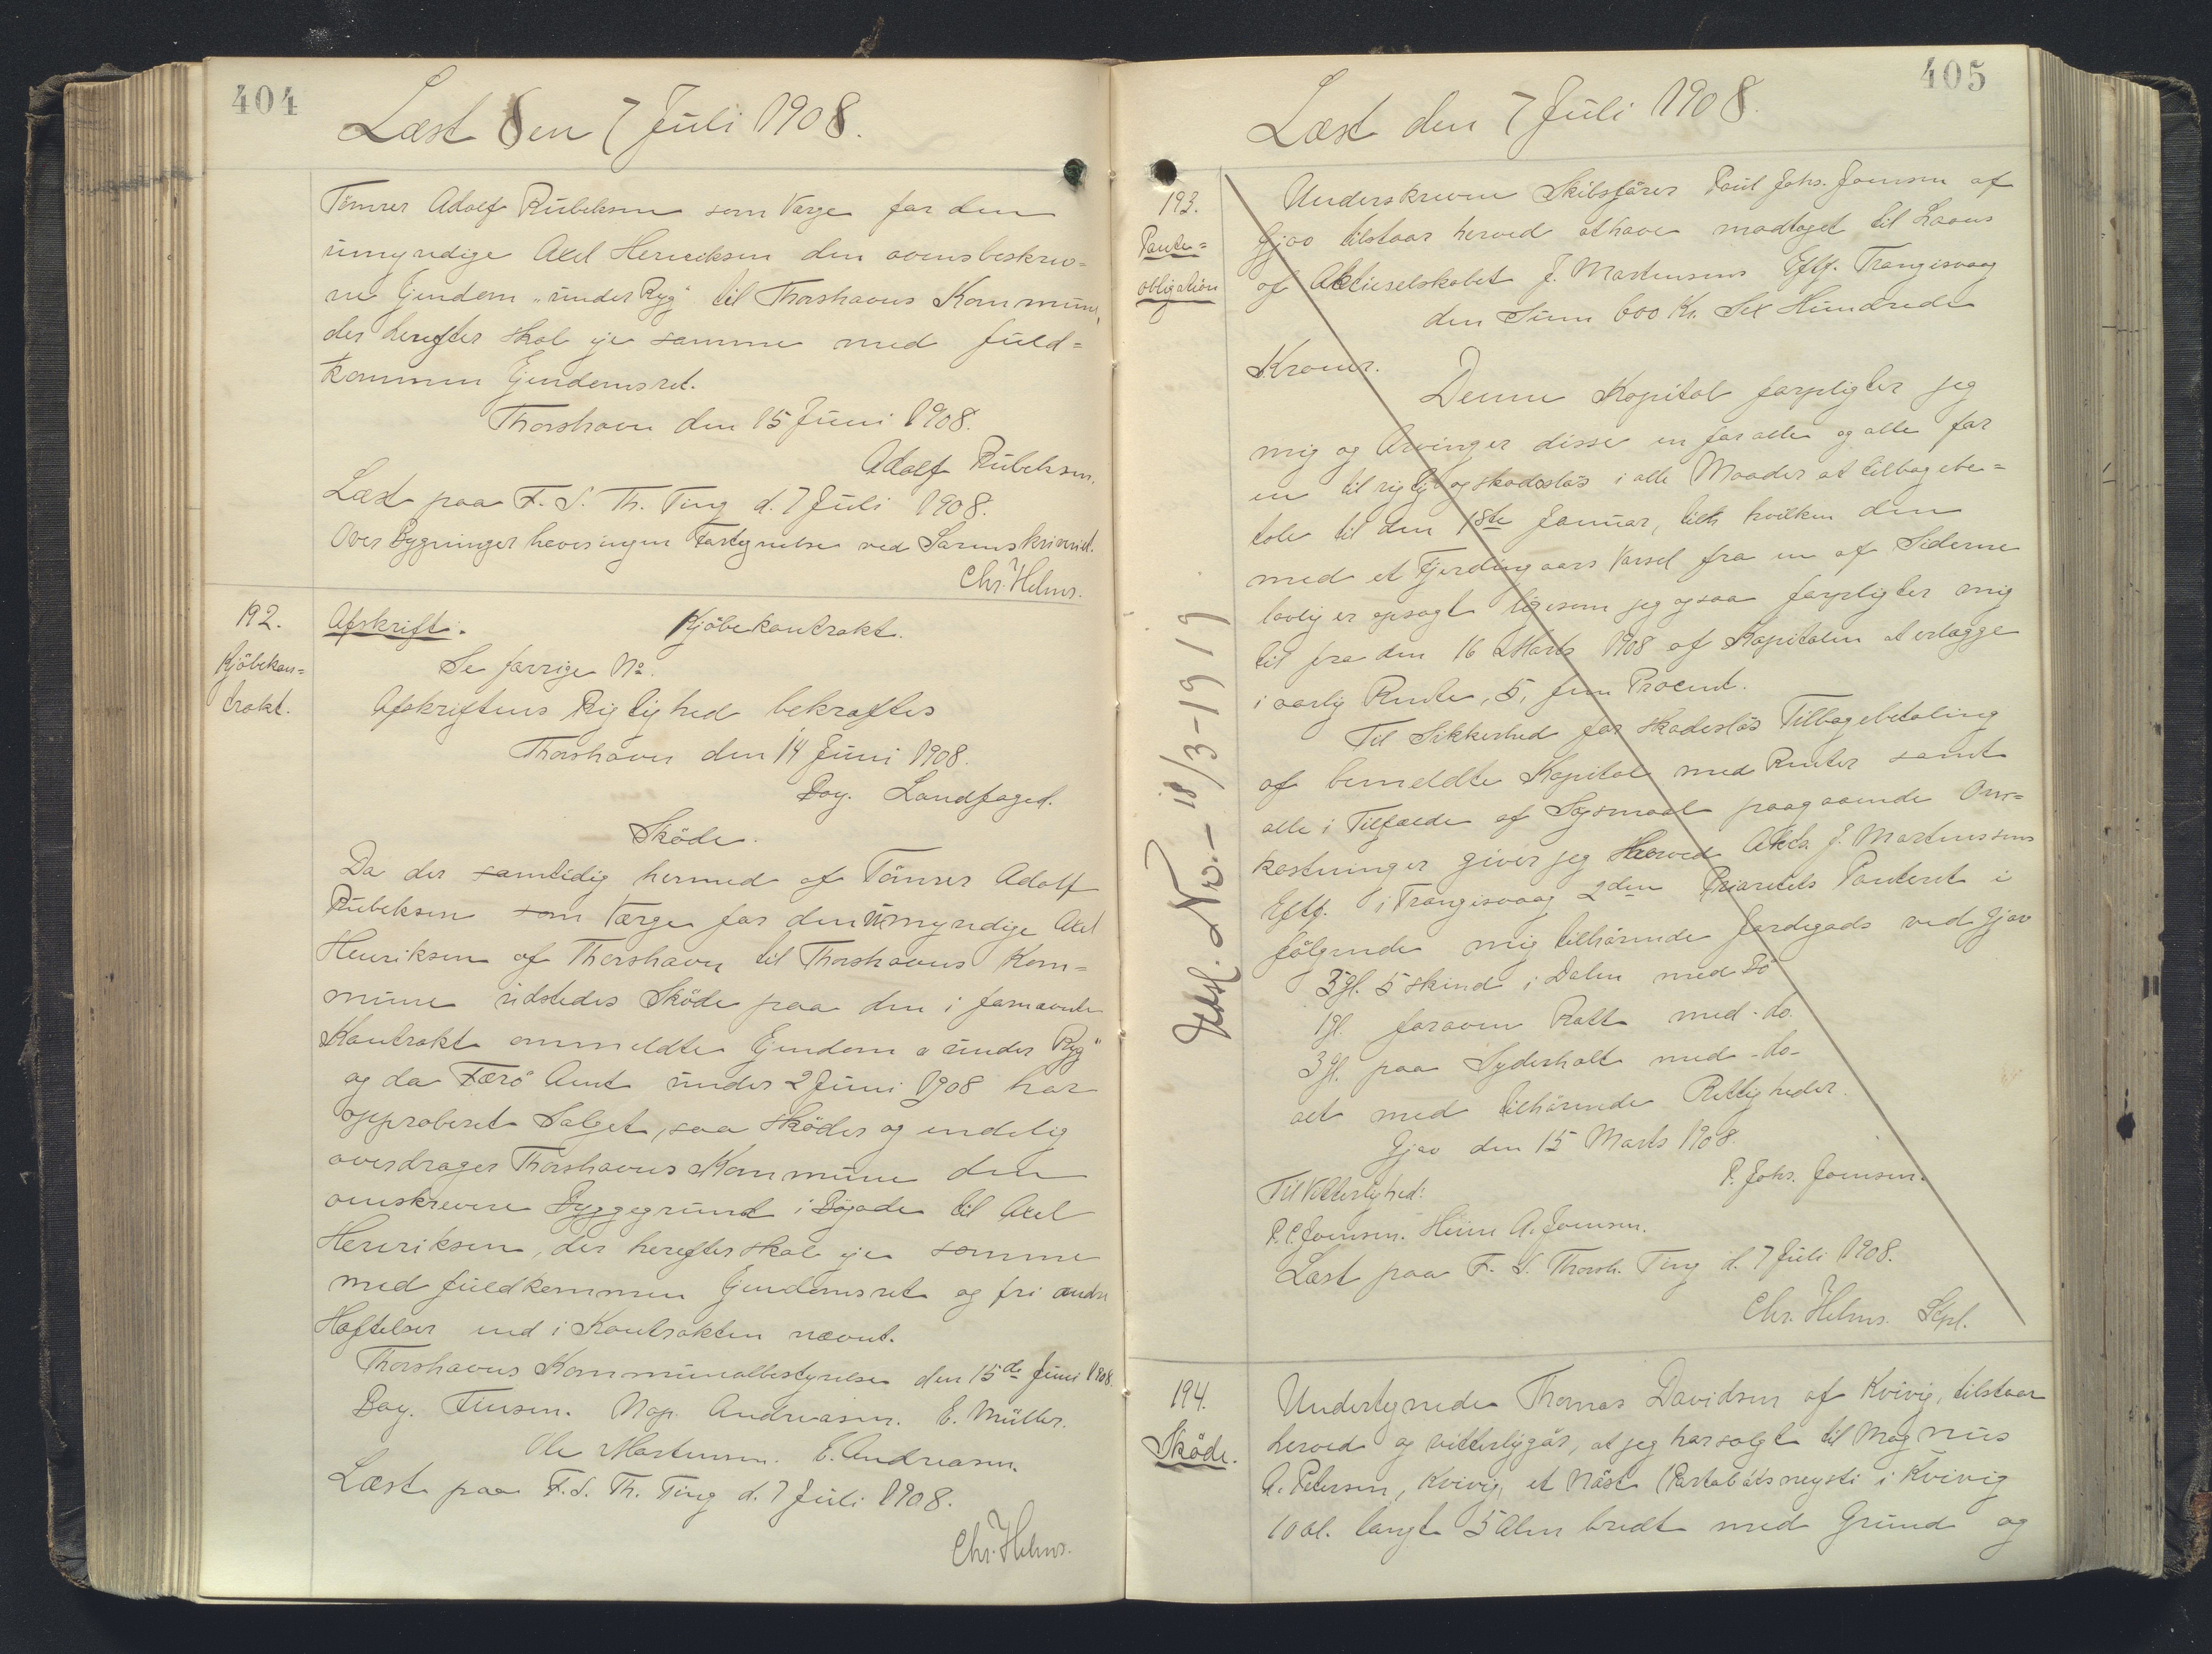 404
Læst den 7 Juli 1908.
Tömrer Adolf Rubeksen som Værge for den
umyndige Axel Henriksen den ovensbeskrev-
ne Ejendom "under Ryg" til Thorshavns Kommune,
der herefter skal eje samme med fuld-
kommen Ejendomsret.
Thorshavn den 15 Juni 1908.
Adolf Rubeksen.
Læst paa F. S. Th. Ting d. 7 Juli 1908.
Over Bygninger haves ingen Fortegnelse ved Sorenskriveriet.
Chr. Helms.
192.
Kjöbekon-
trakt.
Afskrift. Kjöbekontrakt.
Se forrige No.
Afskriftens Rigtighed bekræftes
Thorshavn den 14 Juni 1908.
Bay. Landfoged.
Sköde.
Da der samtidig hermed af Tömrer Adolf
Rubeksen som Værge for den umyndige Axel
Henriksen af Thorshavn til Thorshavns Kom-
mune udstedes Sköde paa den i fornævnte
Kontrakt ommeldte Ejendom "under Ryg"
og da Færö Amt under 2 Juni 1908 har
approberet Salget, saa sköder og endelig
overdrager Thorshavns Kommune den
omskrevne Byggegrund i Bögade til Axel
Henriksen, der herefter skal eje samme
med fuldkommen Ejendomsret og fri andre
Hæftelser end i Kontrakten nævnt.
Thorshavns Kommunalbestyrelse den 15de Juni 1908.
Bay. Finsen. Nap. Andreasen. E. Müller.
Ole Mortensen. E. Andreasen.
Læst paa F. S. Th. Ting d. 7 Juli 1908.
Chr. Helms.
405
Læst den 7 Juli 1908.
193.
Pante-
obligation
Underskreven Skibsförer Poul Johs. Joensen af
Gjov tilstaar herved at have modtaget til Laans
af Aktieselskabet J. Mortensens Eftf. Trangisvaag
den Sum 600 Kr. Sex Hundrede
Kroner.
Denne Kapital forpligter jeg
mig og Arvinger disse en for alle og alle for
en til rigtig og skadeslös i alle Maader at tilbagebe-
tale til den 1ste Januar, til hvilken den
med et Fjerdingaars Varsel fra en af Siderne
lovlig er opsagt ligesom jeg ogsaa forpligter mig
til fra den 16 Marts 1908 af Kapitalen at erlægge
i aarlig Rente, 5, fem Procent.
Til Sikkerhed for skadeslös Tilbagebetaling
af bemeldte Kapital med Renter samt
alle i Tilfælde af Sögsmaal paagaaende Om-
kostninger giver jeg Herved Akts. J. Mortenssens
Eftf. i Trangisvaag 2den Prioritets Panteret i
fölgende mig tilhörende Jordegods ved Gjov
3 gl. 5 skind i Dalen med Bö
1 gl. foroven Rætt med - do.
3 gl. paa Syderhalt med - do -
alt med tilhörende Rettigheder.
Gjov den 15 Marts 1908.
P. Johs. Joensen.
Til Vitterlighed:
P. C. Joensen. A. Joensen.
Læst paa F. S. Thorsh. Ting d. 7 Juli 1908.
Chr. Helms. Kpl.
Udsl. No. - 18/3-1919
194.
Sköde.
Undertegnede Thomas Davidsen af Kvivig, tilstaar
herved og vitterliggör, at jeg har solgt til Magnus
A. Petersen, Kvivig, et Nöst (Partabátsneysti i Kvivig
10 al. langt 5 Alen bredt med Grund og